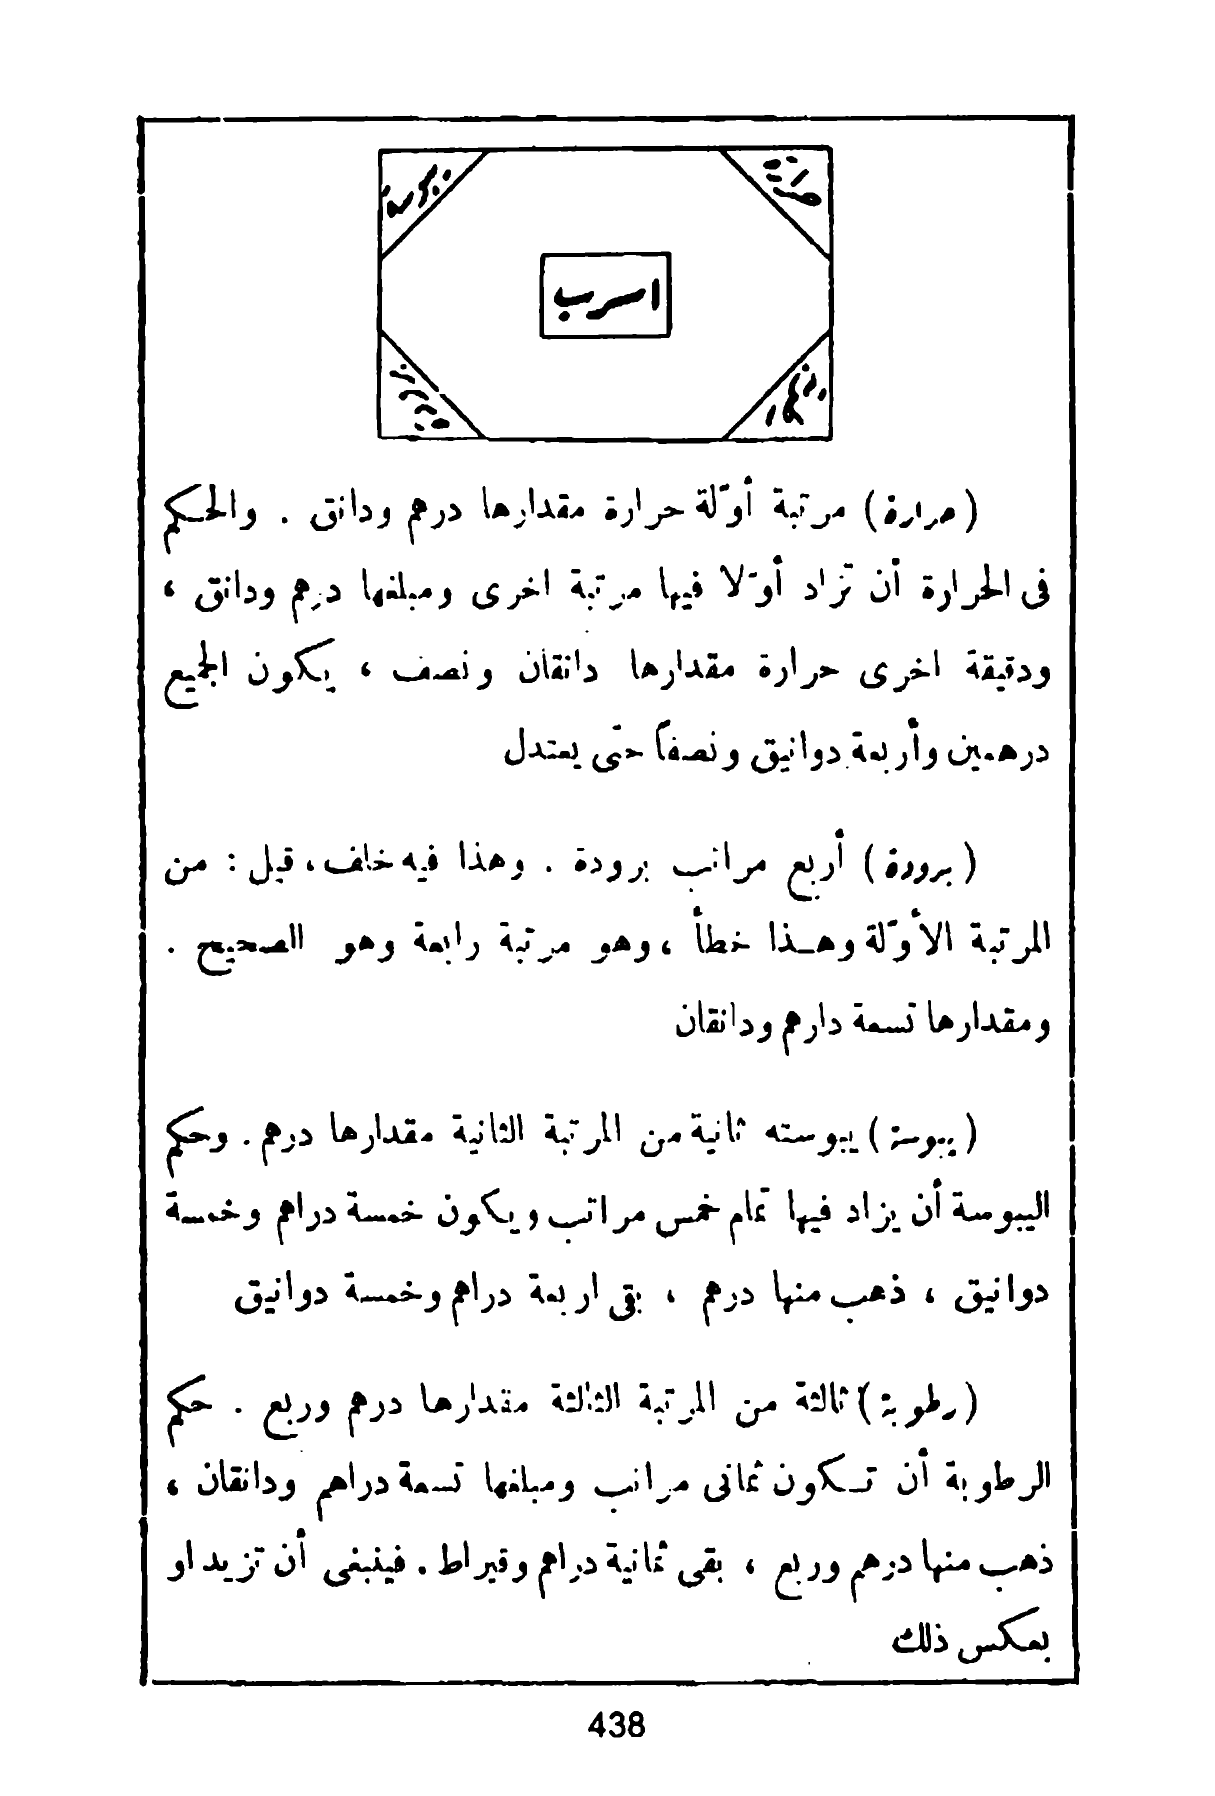 حرارة
يبوسة
اسرب
برودة
رطوبة
(حرارة) مرتبة أوّلة حرارة مقدارها درهم ودانق . والحكم
فى الحرارة أن تزاد أوّلا فيها مرتبة اخرى ومبلغها درهم ودانق ،
ودقيقة اخرى حرارة مقدارها دانقان ونصف ، يكون الجميع
درهمين وأربعة دوانيق ونصفاً حتّى يعتدل
(برودة) أربع مراتب برودة . وهذا فيه خلف ، قيل : من
المرتبة الأوّلة وهـذا خطأ ، وهو مرتبة رابعة وهو الصحيح .
ومقدارها تسعة دارهم ودانقان
(يبوسة) يبوسته ثانية من المرتبة الثانية مقدارها درهم . وحكم
اليبوسة أن يزاد فيها تمام خمس مراتب ويكون خمسة دراهم وخمسة
دوانيق ، ذهب منها درهم ، بقى اربعة دراهم وخمسة دوانيق
(رطوبة) ثالثة من المرتبة الثالثة مقدارها درهم وربع . حكم
الرطوبة أن تـكون ثمانى مراتب ومبلغها تسعة دراهم ودانقان ،
ذهب منها درهم وربع ، بقى ثمانية دراهم وقيراط . فينبغى أن تزيد او
بعكس ذلك
438